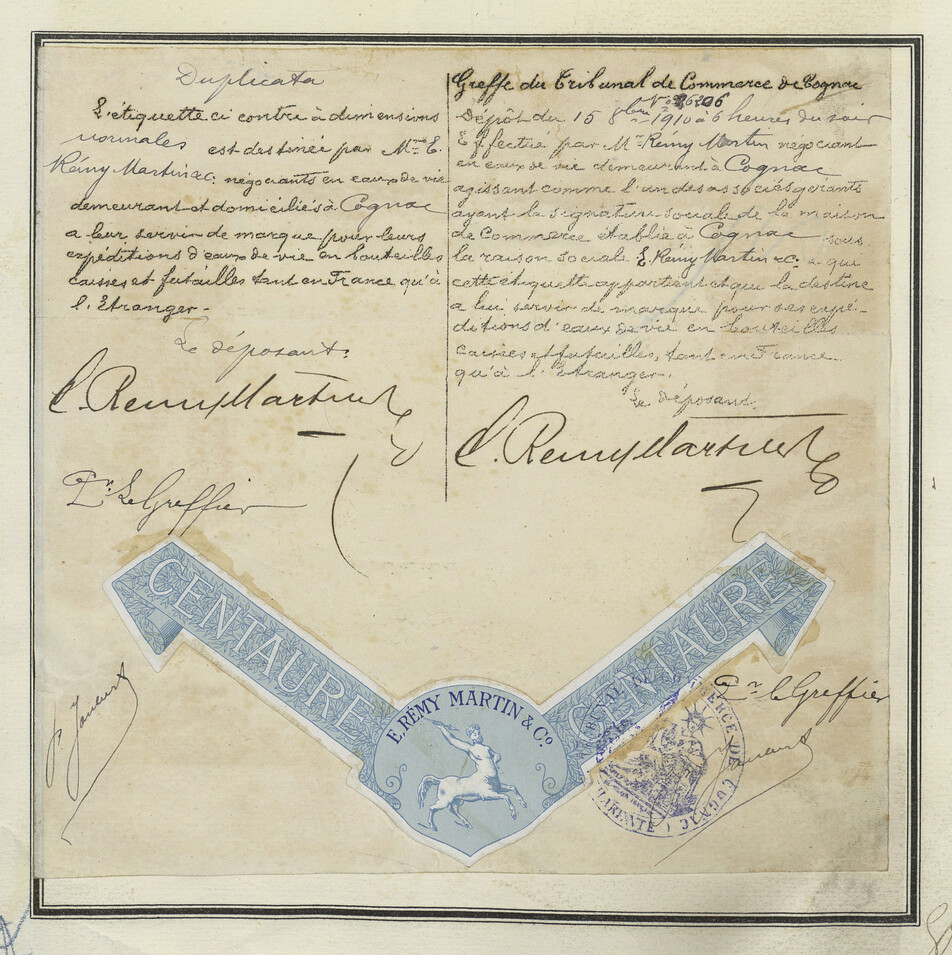 Duplicata
L'étiquette ci contre à dimensions
normales est destinée par Mrs E.
Rémy Martin & c. négociants en eaux de vie
demeurant et domiciliés à Cognac
a leur servir de marque pour leurs
expéditions d'eaux de vie en bouteilles
caisses et futailles tant en France qu'à
l'Etranger -
Le déposant.
E. Remy Martin & C
Pr Le Greffier
Greffe du Tribunal de Commerce de Cognac
No 26206
Dépôt du 15 8bre 1910 à 6 heures du soir
Effectué par Mr Rémy Martin négociant
en eaux de vie demeurant à Cognac
agissant comme l'un des associés gérants
ayant la signature sociale de la maison
de Commerce établie à Cognac sous
la raison sociale E. Rémy Martin & c. a qui
cette étiquette appartient et qui la destine
a lui servir de marque pour ses expé-
ditions d'eaux de vie en bouteilles
caisses et futailles, tant en France
qu'à l'Etranger.
Le déposant
E. Remy Martin & C
CENTAURE
CENTAURE
E. RÉMY MARTIN & Co.
Pr le Greffier
TRIBUNAL DE COMMERCE DE COGNAC